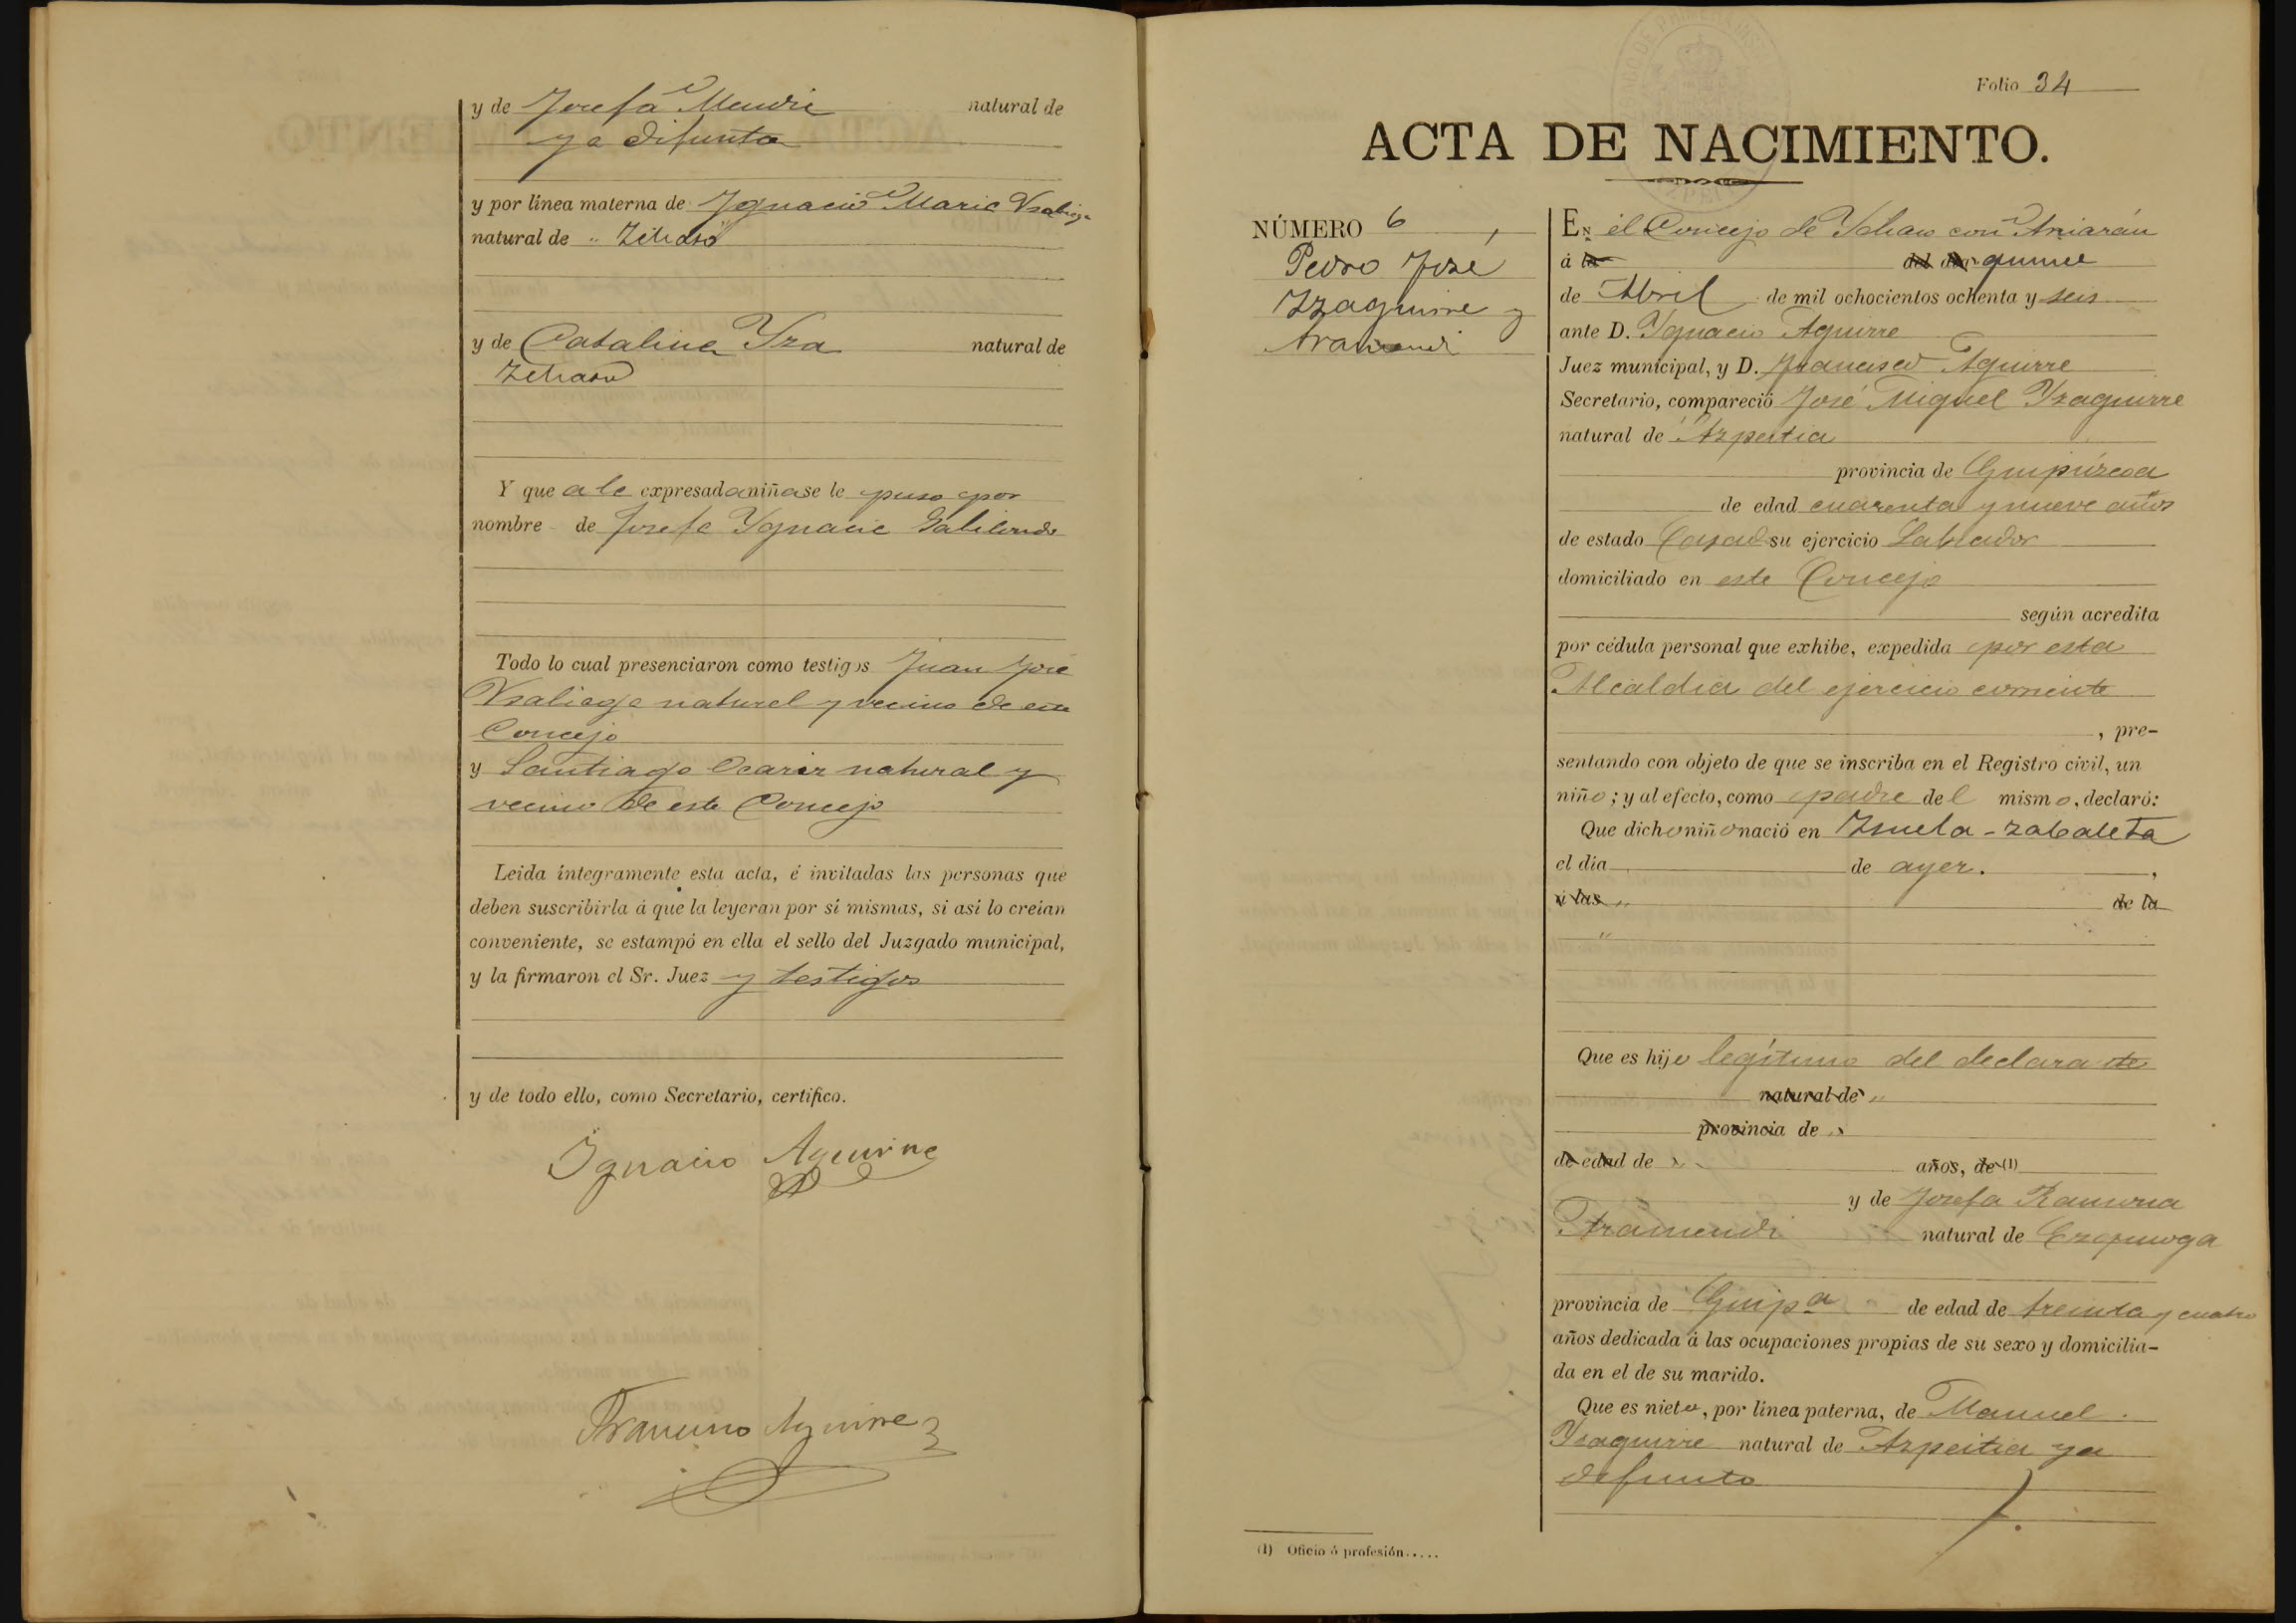 y de Josefa Mendia natural de
ya difunta
y por línea materna de Ygnacio Maria Usaliaga
natural de " Ichaso
y de Catalina Yza natural de
Ichaso
Y que a la expresada niña se le puso por
nombre de Josefa Ygnacia Gabilondo
Todo lo cual presenciaron como testigos Juan José
Usaliaga natural y vecino de este
Concejo
y Santiago natural y
vecino de este Concejo
Leida íntegramente esta acta, é invitadas las personas que
deben suscribirla á que la leyeran por sí mismas, si así lo creían
conveniente, se estampó en ella el sello del Juzgado municipal,
y la firmaron el Sr. Juez y testigos
y de todo ello, como Secretario, certifico.
Ygnacio Aguirre
Francisco Aguirre
Folio 34
ACTA DE NACIMIENTO.
NÚMERO 6
Pedro José
Yzaguirre y
Aramendi
En el Concejo de Ychaso con Arriarán
á la del día quince
de Abril de mil ochocientos ochenta y seis
ante D. Ygnacio Aguirre
Juez municipal, y D. Francisco Aguirre
Secretario, compareció José Miguel Yzaguirre
natural de Azpeitia
provincia de Guipúzcoa
de edad cuarenta y nueve años
de estado Casado su ejercicio Labrador
domiciliado en este Concejo
según acredita
por cédula personal que exhibe, expedida por esta
Alcaldia del ejercicio corriente
, pre-
sentando con objeto de que se inscriba en el Registro civil, un
niño; y al efecto, como padre del mismo, declaró:
Que dicho niño nació en Zuela-zabaleta
el día de ayer.
á las " de la
"
Que es hijo legítimo del declarante
natural de "
provincia de "
de edad de " años, de (1)
y de Josefa Ramona
Aramendi natural de Ezquioga
provincia de Guipa de edad de treinta y cuatro
años dedicada á las ocupaciones propias de su sexo y domicilia-
da en el de su marido.
Que es nieto, por línea paterna, de Manuel
Yzaguirre natural de Azpeitia ya
difunto
(1) Oficio ó profesión.....